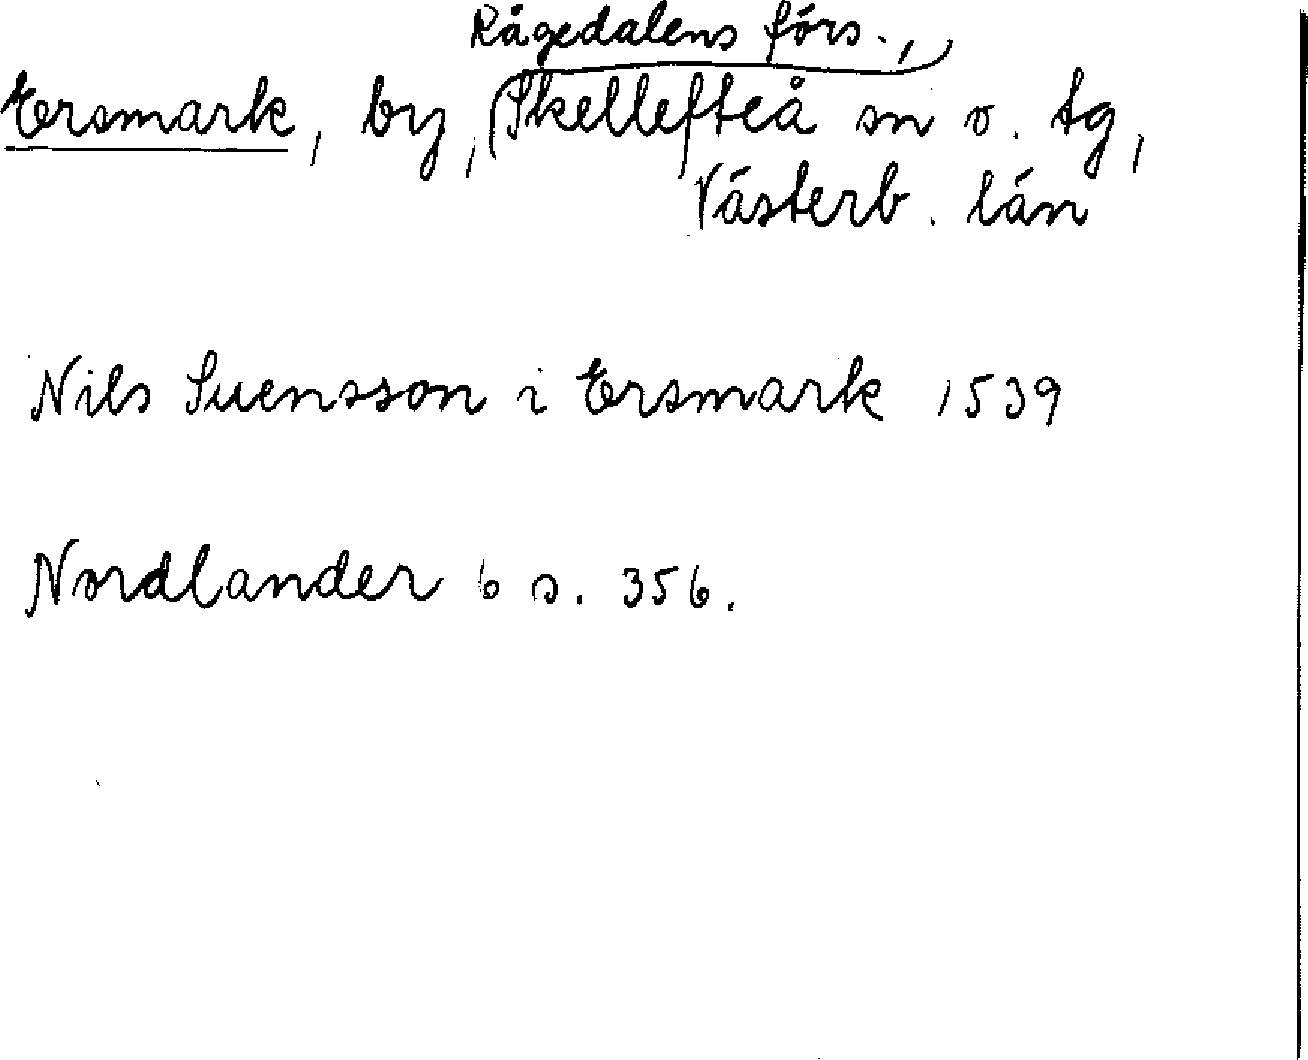 Kågedalens förs.,
Ersmark, by, Skellefteå sn o. tg,
Västerb. län
Nils Suensson i Ersmark 1539
Nordlander 6 s. 356.